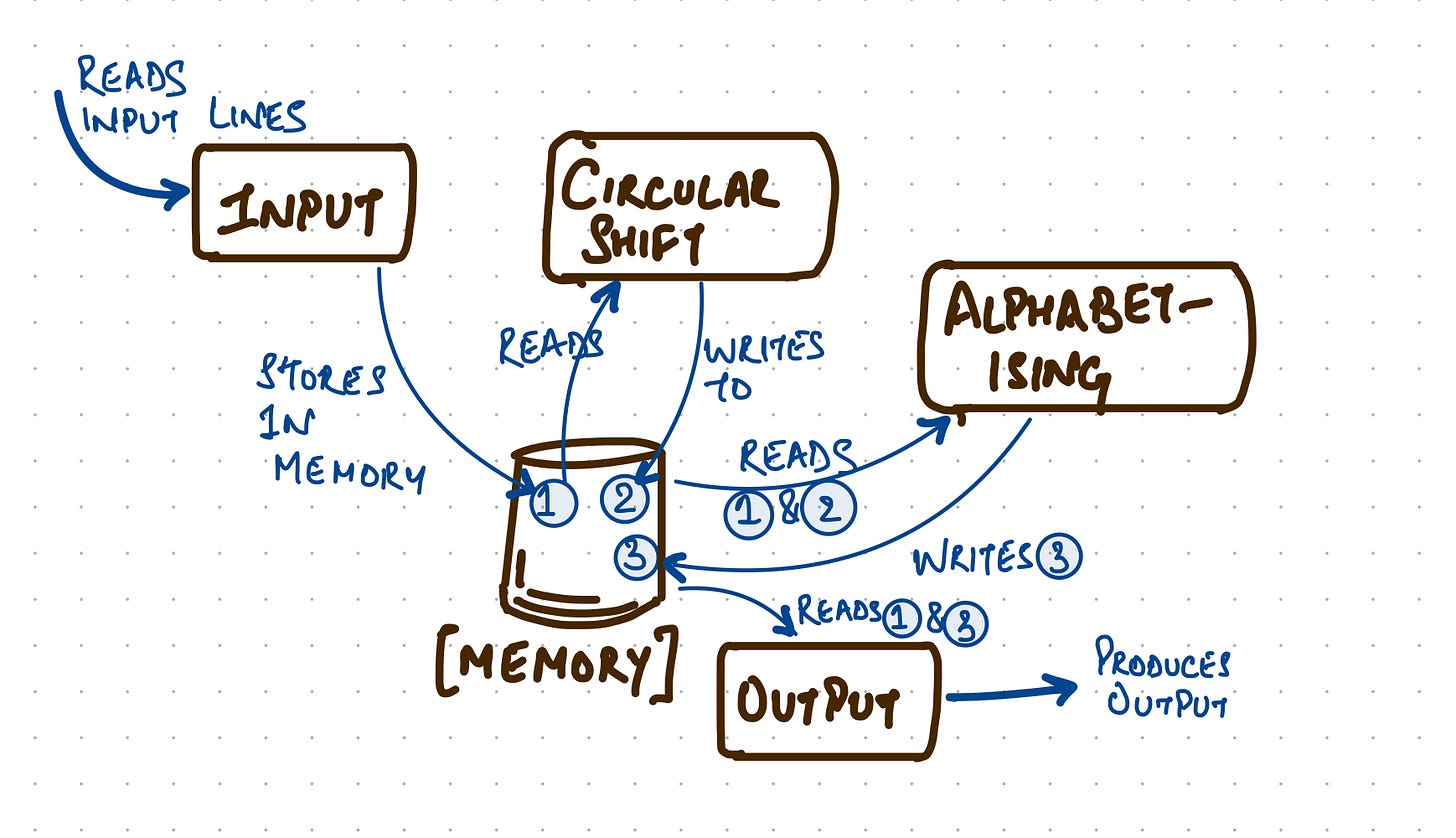 READS
INPUT LINES
INPUT
CIRCULAR
SHIFT
ALPHABET-
ISING
STORES
IN
MEMORY
READS
WRITES
TO
1 2
3
READS
1 & 2
WRITES 3
READS 1 & 3
[MEMORY]
OUTPUT
PRODUCES
OUTPUT